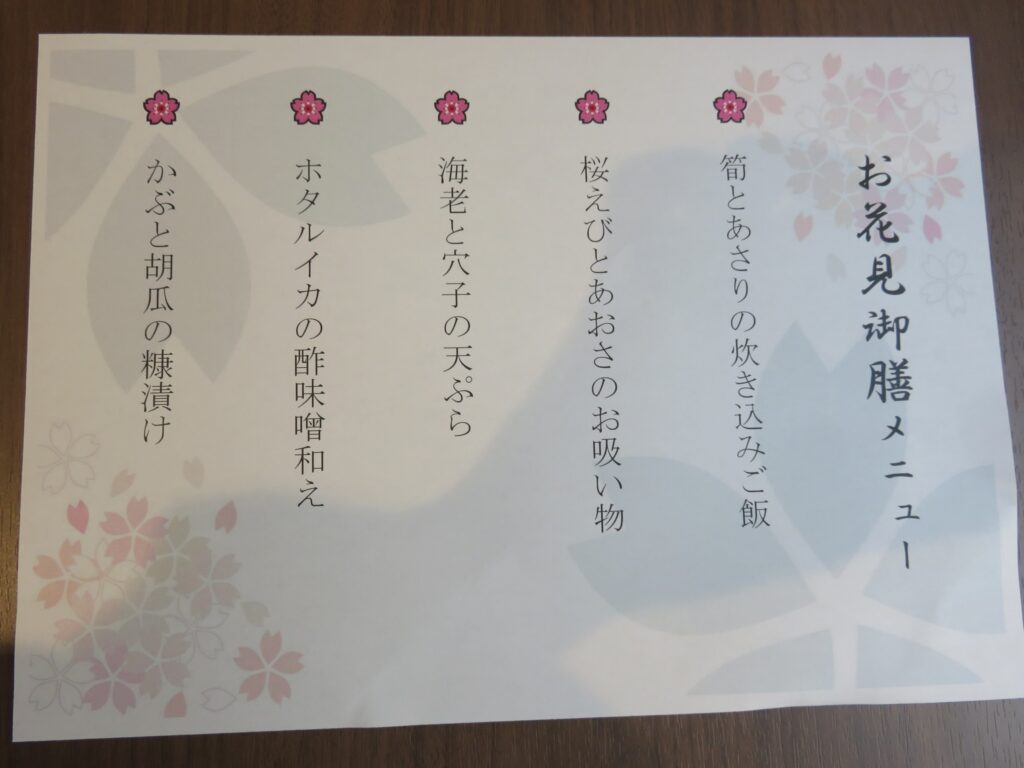 お花見御膳メニュー
筍とあさりの炊き込みご飯
桜えびとあおさのお吸い物
海老と穴子の天ぷら
ホタルイカの酢味噌和え
かぶと胡瓜の糠漬け